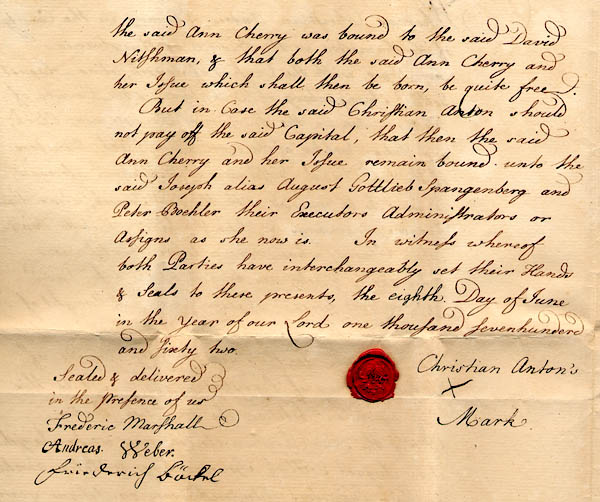 the said Ann Cherry was bound to the said David
Nitshman, & that both the said Ann Cherry and
her Issue which shall then be born, be quite free.
But in Case the said Christian Anton should
not pay off the said Capital, that then the said
Ann Cherry and her Issue remain bound unto the
said Joseph alias August Gottlieb Spangenberg and
Peter Boehler their Executors Administrators or
Assigns as she now is. In witness whereof
both Parties have interchangeably set their Hands
& Seals to these presents, the eighth Day of June
in the Year of our Lord one thousand sevenhunderd
and sixty two.
Sealed & delivered
in the Presence of us
Frederic Marshall
Andreas Weber.
Friederich Böckel
Christian Anton's
X
Mark.